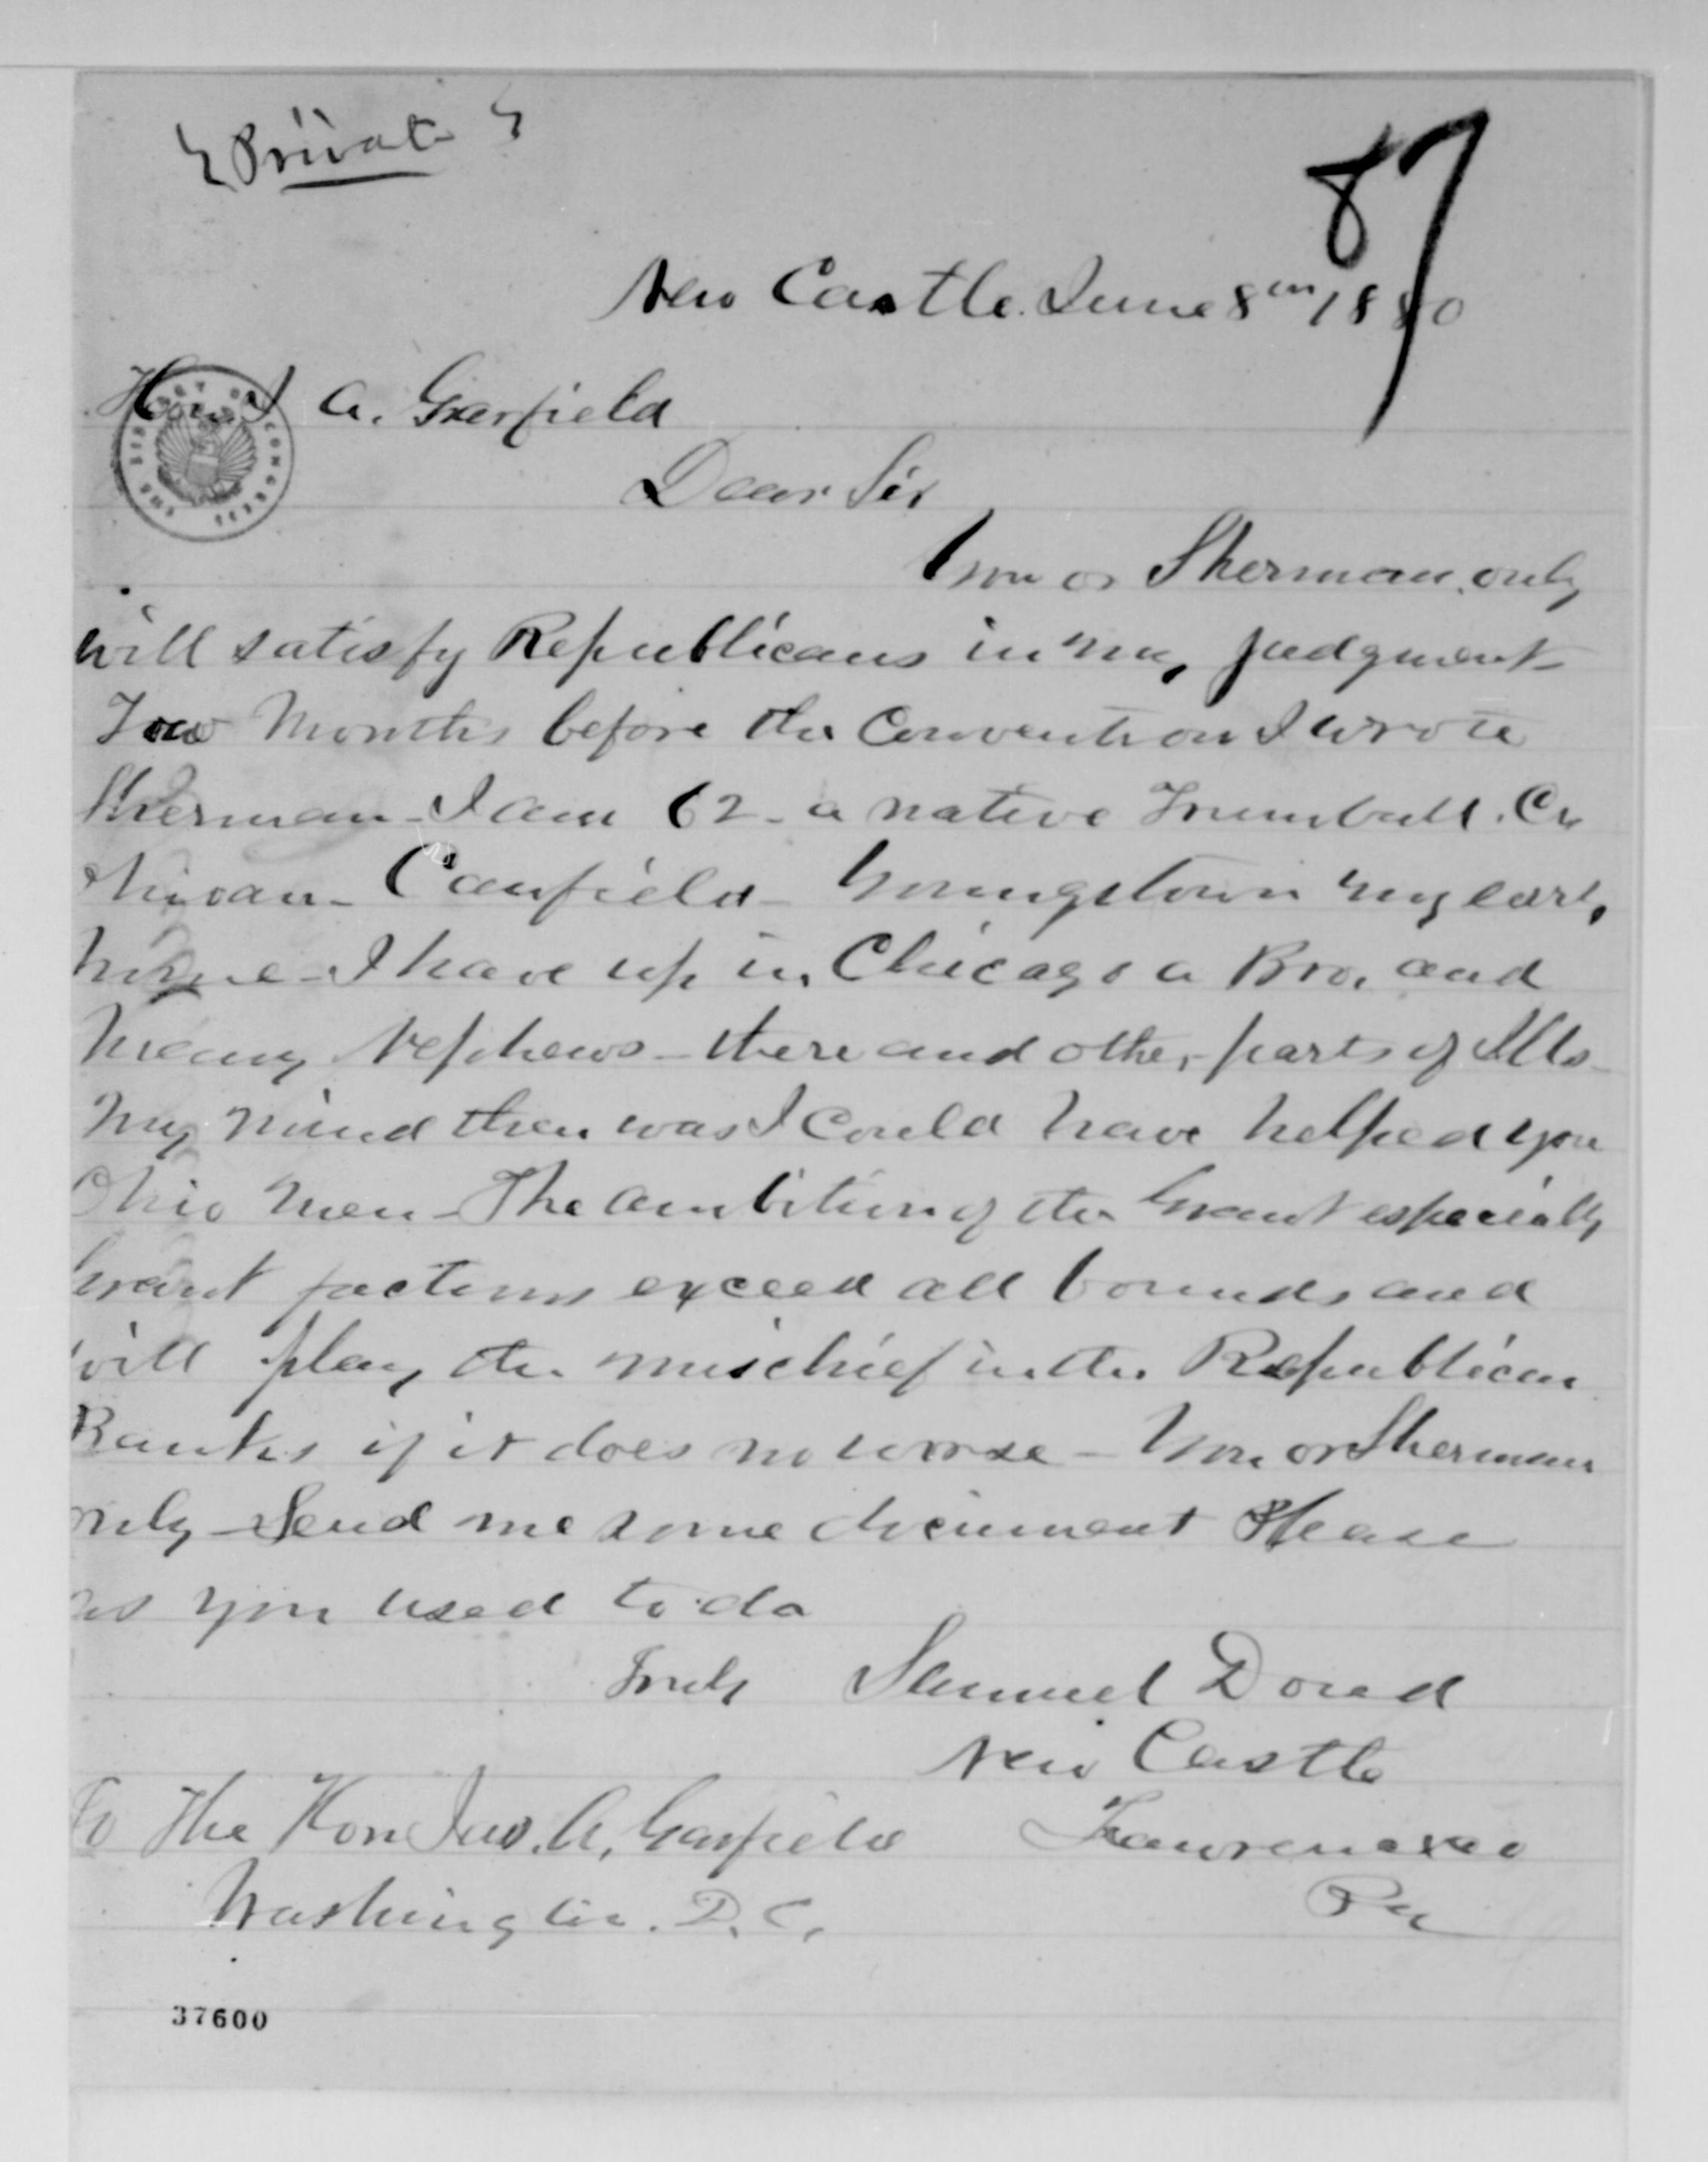 Private
87
New Castle. June 8th 1880
Hon J A. Garfield
THE LIBRARY OF CONGRESS
Dear Sir
You or Sherman only
will satisfy Republicans in my judgment
Two Months before the Convention I wrote
Sherman - I am 62 - a native Trumbull. Co
Canfield - Youngstown my early
home - I have up in Chicago a Bro, and
many Nephews - there and other parts of Ills -
My mind then was I could have helped you
Ohio men - The ambition of the Grant especially
Grant factions exceed all bounds and
will play the mischief in the Republican
Ranks if it does no worse - You or Sherman
only - Send me some document Please
as you used to do
Truly Samuel Dowd
New Castle
To The Hon Jas. A. Garfield Lawrence Co
Washington. D. C. Pa
37600